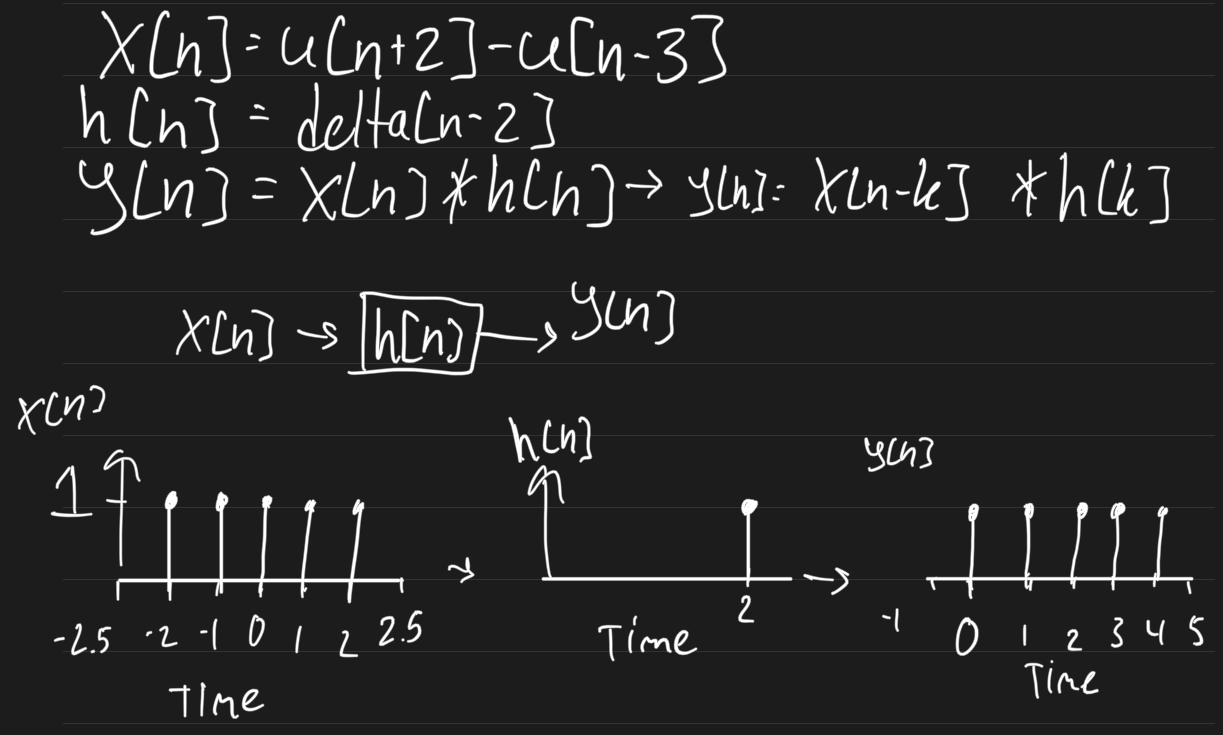 X[n]=u[n+2]-u[n-3]
h[n] = delta[n-2]
y[n] = x[n]*h[n]→ y[n]= x[n-k] *h[k]
X[n] → h[n] → y[n]
x[n]
h[n]
y[n]
1
-2.5 -2 -1 0 1 2 2.5
Time
2
Time
-1 0 1 2 3 4 5
Time